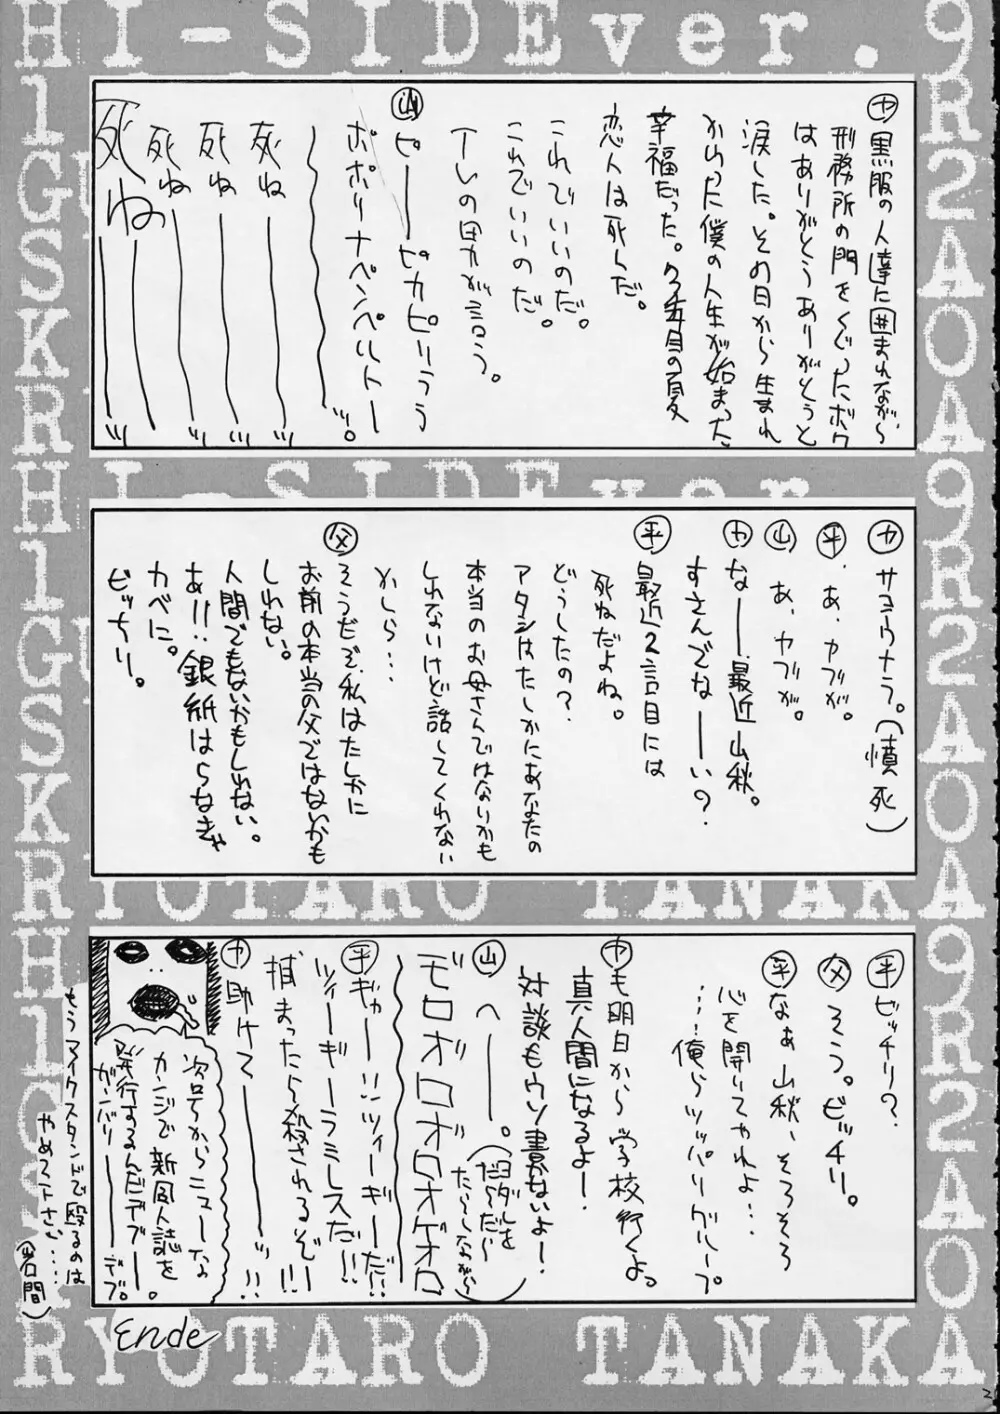 HI-SIDEver.
中 黒服の人達に囲まれながら、
刑務所の門をくぐったボク
はありがとうありがとうと
涙した。その日から生まれ
かわった僕の人生が始まった
幸福だった。
恋人は死んだ。
これでいいのだ。
これでいいのだ。
山 ピーーピカピリうう
ポポリーナペンペルトー
～～～ッ。
死ねーーッ
死ねーーッ
死ねーーッ
死ねーーッ
HI-SIDEver.
カ サヨウナラ。(憤死)
平、あ、カブが。
山 あ、カブが。
な――最近山秋。
すさんでな――い?
平 最近2言目には
死ねだよね。
どうしたの?
アタシはたしかにあなたの
本当のお母さんではないかも
しれないけど話してくれない
かしら…
父 そうだぞ、私はたしかに
お前の本当の父ではないかも
しれない。
人間でもないかもしれない。
あ!!銀紙はらなきゃ
カベに。
ビッちり。
RYOTARO TANAKA
平 ビッチリ?
父 そう。ビッチリ。
平 なぁ山秋、そろそろ
心を開いてやれよ…
…俺らツッパリグループ
中 も明日から学校行くよっ
真人間になるよ!
対談もウソ書かないよー!
山 へ――。
(ヨダレを
だらだら～
たらしながら)
平 ギャー!!ツィーギーだ!!
ツィーギーラミレスだ!!
捕まったら殺されるぞ!!!
助けて――ッ!!
次号からニューな
カンジで新風人誌を
発行するんだデブー。
ガンバリーデブ。
もうマイクスタンドで殴るのは
やめて下さい…
(岩間)
Ende
RYOTARO TANAKA
2